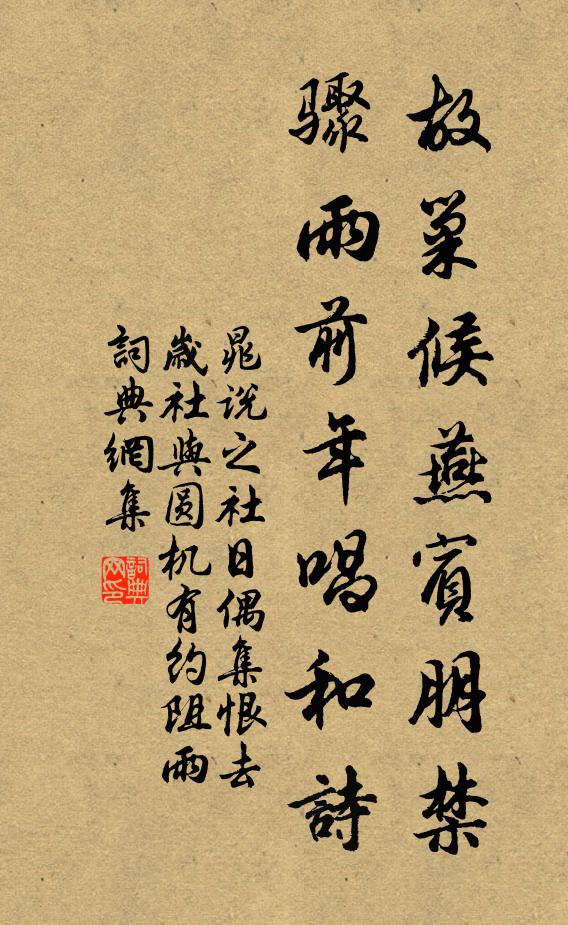 故巢候燕賓朋禁
驟雨前年唱和詩
晁説之社日偶集恨去
歲社與圓机有約阻雨
詞典網集
詞典
网印